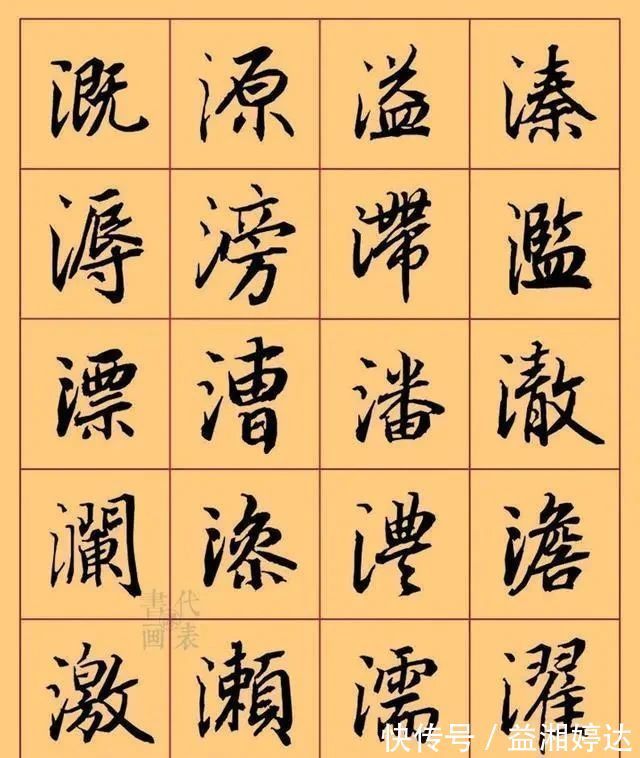 溉 源 溢 溱
溽 滂 滯 濫
漂 漕 潘 澈
瀾 漆 澧 澹
代表
書画
激 瀨 濡 濯
快传号 / 益湘婷达